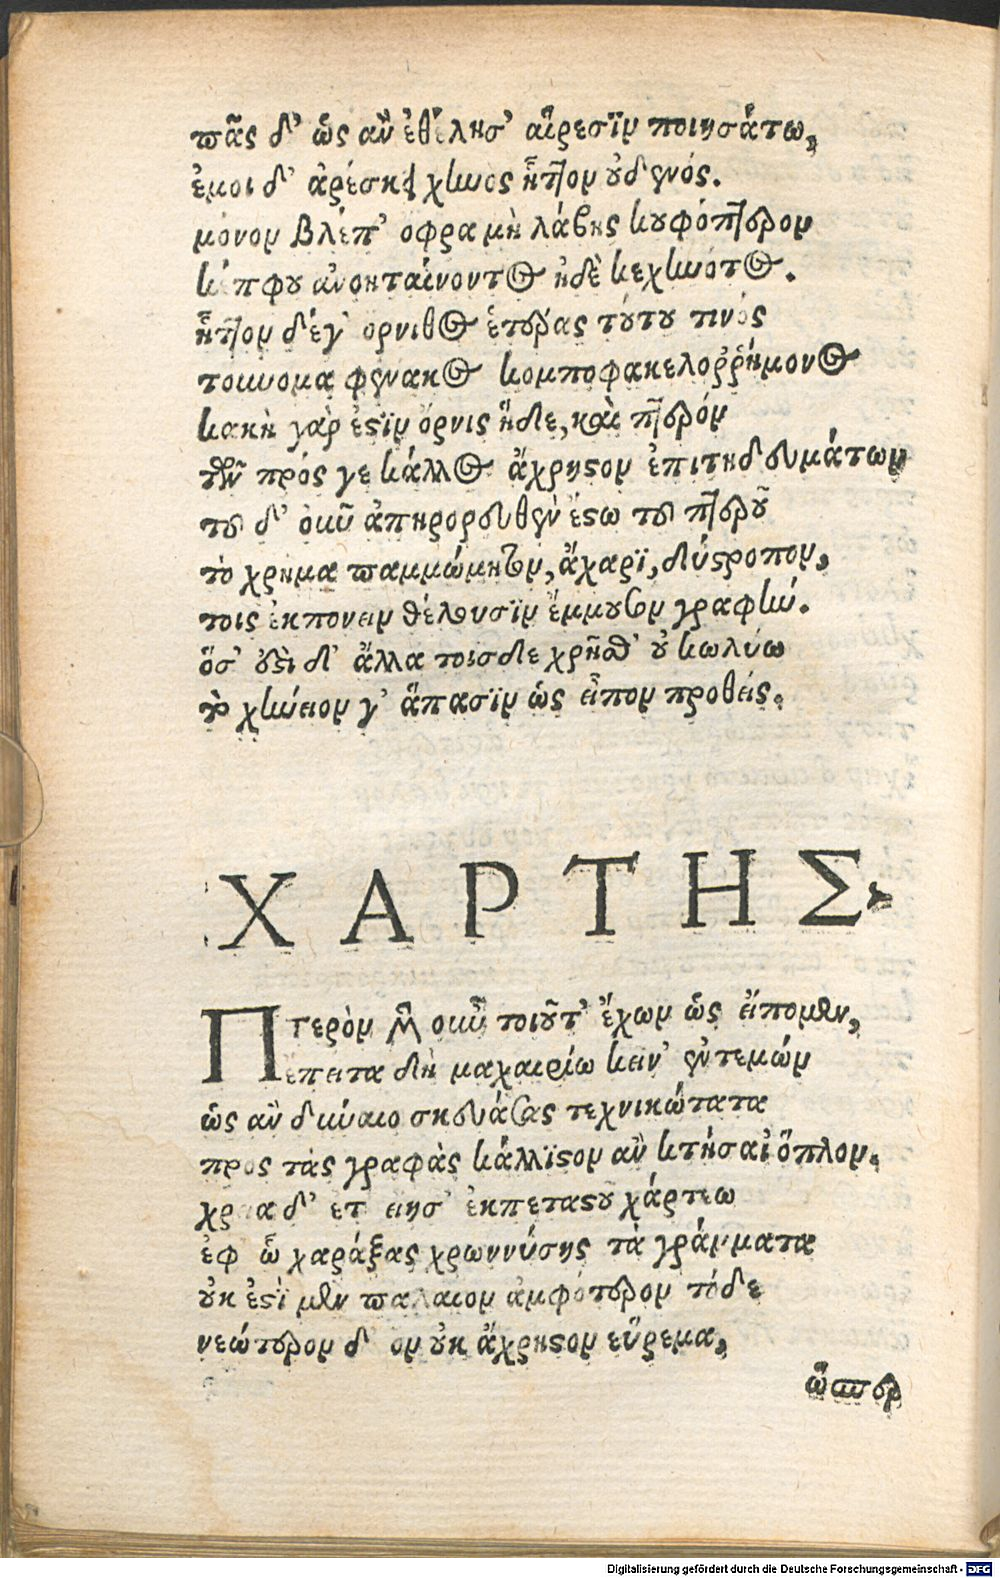 πᾶς δ' ὡς ἂν ἐθέλησ' αἵρεσιν ποιησάτω,
ἐμοι δ' ἀρέσκει χηνὸς ἧττον οὐδενός.
μόνον βλέπ' οφρα μὴ λάβης κουφόπτερον
κέπφου ἀνοηταίνοντος ἠδὲ κεχηνότος.
ἧττον δέγ' ορνιθος ἑτέρας τούτου τινός
τοὐνομα φενακος κομποφακελορρήμονος
κακὴ γὰρ ἐστὶν ὄρνις ἥδε, καὶ πτερόν
τῶν πρός γε κάλλος ἄχρηστον ἐπιτηδευμάτων
του δ' οὐκ οῦν ἀπηγορευθὲν ἔστω του πτεροῦ
τὸ χρημα παμμώμητον, ἄχαρι, δύστροπον,
τοις ἐκπονειν θέλουσιν ἔμμουσον γραφήν.
ὅσ' ἐστὶ δ' ἄλλα τοισδε χρῆσθ' οὐ κωλύω
τὸ χήνειον γ' ἅπασιν ὡς εἶπον προθείς.
ΧΑΡΤΗΣ
Πτερὸν μὲν οὖν τοιοῦτ' ἔχων ὡς εἴπομεν,
ἔπειτα δὴ μαχαιρίω κεῖν' ἐντεμών
ὡς ἂν δύναιο σκευάσας τεχνικώτατα
προς τὰς γραφὰς κάλλιστον ἂν κτήσαι ὅπλον.
χρεία δ' ετ' ειησ' ἐκπεταστοῦ χάρτεω
ἐφ' ᾧ χαράξας χρωννύσης τὰ γράμματα
οὐκ ἐστὶ μὲν παλαιον ἀμφότερον τόδε
νεώτερον δ' ον οὐκ ἄχρηστον εὕρεμα,
ὥσπερ
Digitalisierung gefördert durch die Deutsche Forschungsgemeinschaft - DFG